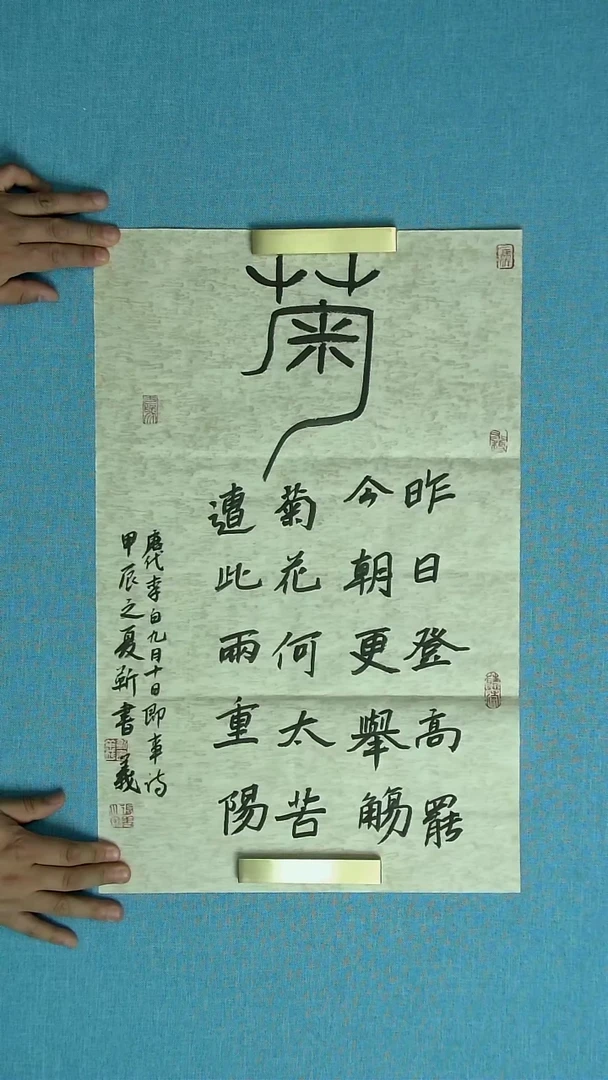 菊
昨日登高罷
今朝更舉觴
菊花何太苦
遭此兩重陽
唐代李白九月十日即事诗
甲辰之夏靳書義